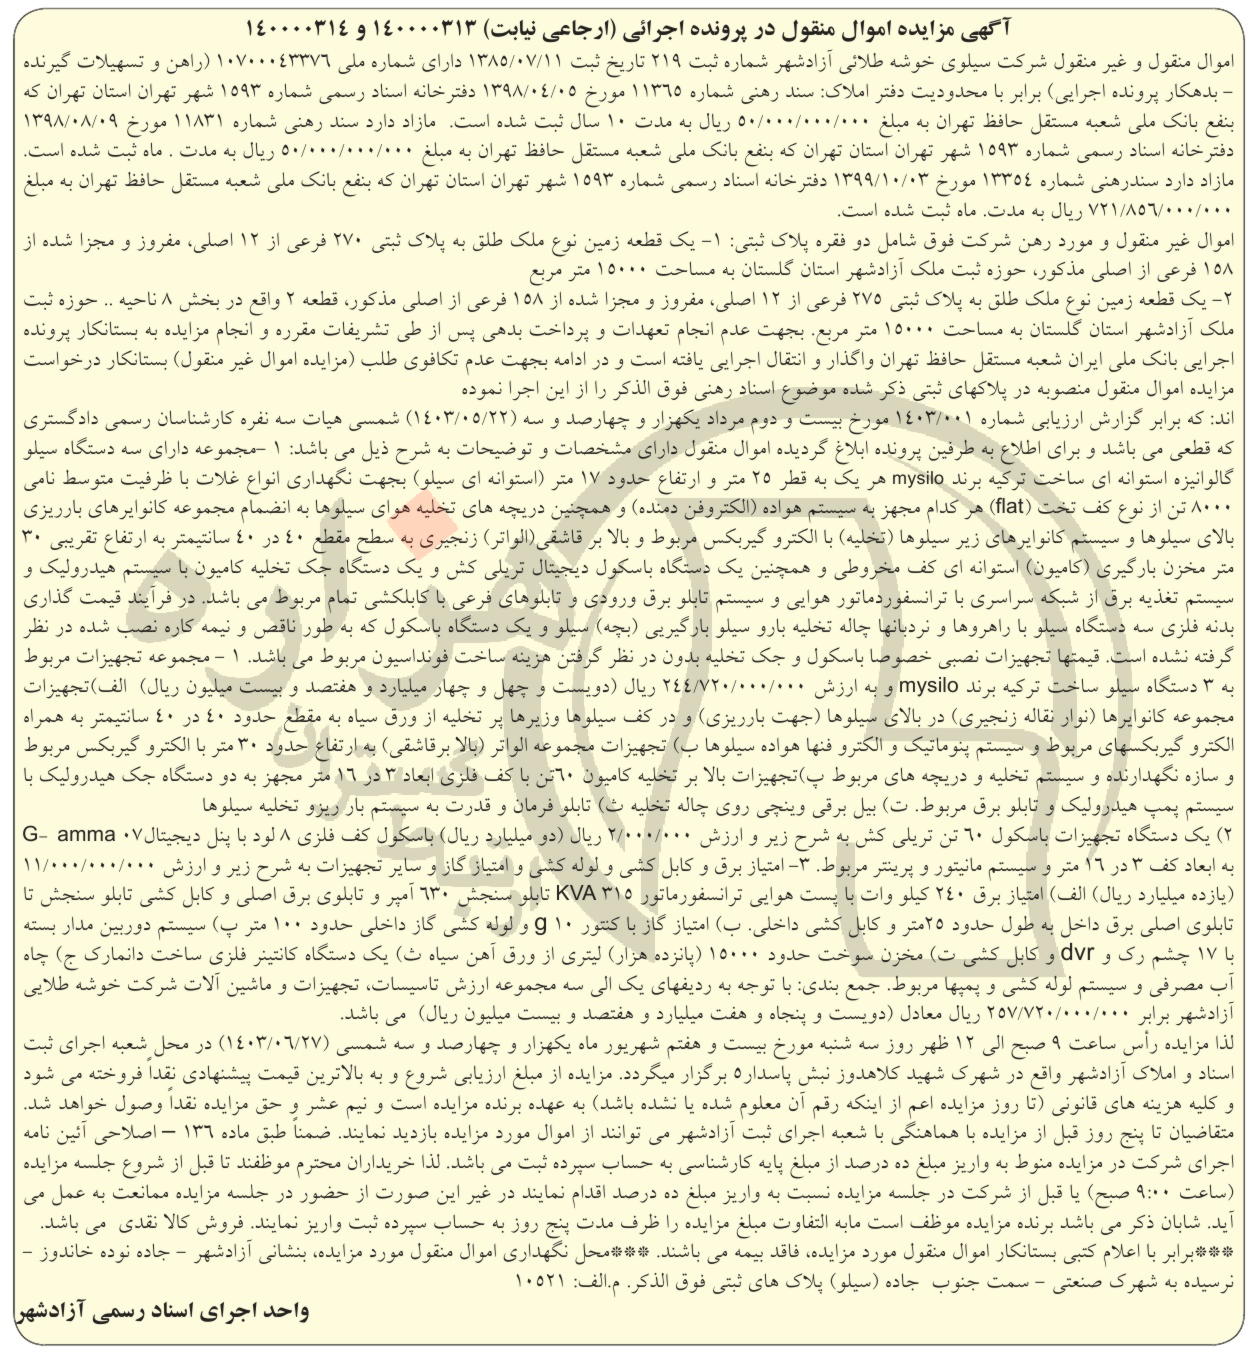 آگهی مزایده اموال منقول در پرونده اجرائی (ارجاعی نیابت) ۱۴۰۰۰۰۳۱۳ و ۱۴۰۰۰۰۳۱٤
اموال منقول و غیر منقول شرکت سیلوی خوشه طلائی آزادشهر شماره ثبت ۲۱۹ تاریخ ثبت ۱۳۸۵/۰۷/۱۱ دارای شماره ملی ۱۰۷۰۰۰٤۳۳۷٦ (راهن و تسهیلات گیرنده
– بدهکار پرونده اجرایی) برابر با محدودیت دفتر املاک: سند رهنی شماره ۱۱۳٦۵ مورخ ۱۳۹۸/۰٤/۰۵ دفترخانه اسناد رسمی شماره ۱۵۹۳ شهر تهران استان تهران که
بنفع بانک ملی شعبه مستقل حافظ تهران به مبلغ ۵۰/۰۰۰/۰۰۰/۰۰۰ ریال به مدت ۱۰ سال ثبت شده است. مازاد دارد سند رهنی شماره ۱۱۸۳۱ مورخ ۱۳۹۸/۰۸/۰۹
دفترخانه اسناد رسمی شماره ۱۵۹۳ شهر تهران استان تهران که بنفع بانک ملی شعبه مستقل حافظ تهران به مبلغ ۵۰/۰۰۰/۰۰۰/۰۰۰ ریال به مدت . ماه ثبت شده است.
مازاد دارد سندرهنی شماره ۱۳۳۵٤ مورخ ۱۳۹۹/۱۰/۰۳ دفترخانه اسناد رسمی شماره ۱۵۹۳ شهر تهران استان تهران که بنفع بانک ملی شعبه مستقل حافظ تهران به مبلغ
۷۲۱/۸۵٦/۰۰۰/۰۰۰ ریال به مدت. ماه ثبت شده است.
اموال غیر منقول و مورد رهن شرکت فوق شامل دو فقره پلاک ثبتی: ۱- یک قطعه زمین نوع ملک طلق به پلاک ثبتی ۲۷۰ فرعی از ۱۲ اصلی، مفروز و مجزا شده از
۱۵۸ فرعی از اصلی مذکور، حوزه ثبت ملک آزادشهر استان گلستان به مساحت ۱۵۰۰۰ متر مربع
۲- یک قطعه زمین نوع ملک طلق به پلاک ثبتی ۲۷۵ فرعی از ۱۲ اصلی، مفروز و مجزا شده از ۱۵۸ فرعی از اصلی مذکور، قطعه ۲ واقع در بخش ۸ ناحیه .. حوزه ثبت
ملک آزادشهر استان گلستان به مساحت ۱۵۰۰۰ متر مربع. بجهت عدم انجام تعهدات و پرداخت بدهی پس از طی تشریفات مقرره و انجام مزایده به بستانکار پرونده
اجرایی بانک ملی ایران شعبه مستقل حافظ تهران واگذار و انتقال اجرایی یافته است و در ادامه بجهت عدم تکافوی طلب (مزایده اموال غیر منقول) بستانکار درخواست
مزایده اموال منقول منصوبه در پلاکهای ثبتی ذکر شده موضوع اسناد رهنی فوق الذکر را از این اجرا نموده
اند: که برابر گزارش ارزیابی شماره ۱٤۰۳/۰۰۱ مورخ بیست و دوم مرداد یکهزار و چهارصد و سه (۱٤۰۳/۰۵/۲۲) شمسی هیات سه نفره کارشناسان رسمی دادگستری
که قطعی می باشد و برای اطلاع به طرفین پرونده ابلاغ گردیده اموال منقول دارای مشخصات و توضیحات به شرح ذیل می باشد: ۱ -مجموعه دارای سه دستگاه سیلو
گالوانیزه استوانه ای ساخت ترکیه برند mysilo هر یک به قطر ۲۵ متر و ارتفاع حدود ۱۷ متر (استوانه ای سیلو) بجهت نگهداری انواع غلات با ظرفیت متوسط نامی
۸۰۰۰ تن از نوع کف تخت (flat) هر کدام مجهز به سیستم هواده (الکتروفن دمنده) و همچنین دریچه های تخلیه هوای سیلوها به انضمام مجموعه کانوایرهای بارریزی
بالای سیلوها و سیستم کانوایرهای زیر سیلوها (تخلیه) با الکترو گیربکس مربوط و بالا بر قاشقی(الواتر) زنجیری به سطح مقطع ٤۰ در ٤۰ سانتیمتر به ارتفاع تقریبی ۳۰
متر مخزن بارگیری (کامیون) استوانه ای کف مخروطی و همچنین یک دستگاه باسکول دیجیتال تریلی کش و یک دستگاه جک تخلیه کامیون با سیستم هیدرولیک و
سیستم تغذیه برق از شبکه سراسری با ترانسفوردماتور هوایی و سیستم تابلو برق ورودی و تابلوهای فرعی با کابلکشی تمام مربوط می باشد. در فرآیند قیمت گذاری
بدنه فلزی سه دستگاه سیلو با راهروها و نردبانها چاله تخلیه بارو سیلو بارگیریی (بچه) سیلو و یک دستگاه باسکول که به طور ناقص و نیمه کاره نصب شده در نظر
گرفته نشده است. قیمتها تجهیزات نصبی خصوصا باسکول و جک تخلیه بدون در نظر گرفتن هزینه ساخت فونداسیون مربوط می باشد. ۱ - مجموعه تجهیزات مربوط
به ۳ دستگاه سیلو ساخت ترکیه برند mysilo و به ارزش ۲٤٤/۷۲۰/۰۰۰/۰۰۰ ریال (دویست و چهل و چهار میلیارد و هفتصد و بیست میلیون ریال) الف)تجهیزات
مجموعه کانوایرها (نوار نقاله زنجیری) در بالای سیلوها (جهت بارریزی) و در کف سیلوها وزیرها پر تخلیه از ورق سیاه به مقطع حدود ٤۰ در ٤۰ سانتیمتر به همراه
الکترو گیربکسهای مربوط و سیستم پنوماتیک و الکترو فنها هواده سیلوها ب) تجهیزات مجموعه الواتر (بالا برقاشقی) به ارتفاع حدود ۳۰ متر با الکترو گیربکس مربوط
و سازه نگهدارنده و سیستم تخلیه و دریچه های مربوط پ)تجهیزات بالا بر تخلیه کامیون ٦۰تن با کف فلزی ابعاد ۳ در ۱٦ متر مجهز به دو دستگاه جک هیدرولیک با
سیستم پمپ هیدرولیک و تابلو برق مربوط. ت) بیل برقی وینچی روی چاله تخلیه ث) تابلو فرمان و قدرت به سیستم بار ریزو تخلیه سیلوها
۲) یک دستگاه تجهیزات باسکول ٦۰ تن تریلی کش به شرح زیر و ارزش ۲/۰۰۰/۰۰۰ ریال (دو میلیارد ریال) باسکول کف فلزی ۸ لود با پنل دیجیتال۰۷ G- amma
به ابعاد کف ۳ در ۱٦ متر و سیستم مانیتور و پرینتر مربوط. ۳- امتیاز برق و کابل کشی و لوله کشی و امتیاز گاز و سایر تجهیزات به شرح زیر و ارزش ۱۱/۰۰۰/۰۰۰/۰۰۰
(یازده میلیارد ریال) الف) امتیاز برق ۲٤۰ کیلو وات با پست هوایی ترانسفورماتور ۳۱۵ KVA تابلو سنجش ٦۳۰ آمپر و تابلوی برق اصلی و کابل کشی تابلو سنجش تا
تابلوی اصلی برق داخل به طول حدود ۲۵متر و کابل کشی داخلی. ب) امتیاز گاز با کنتور ۱۰ g و لوله کشی گاز داخلی حدود ۱۰۰ متر پ) سیستم دوربین مدار بسته
با ۱۷ چشم رک و dvr و کابل کشی ت) مخزن سوخت حدود ۱۵۰۰۰ (پانزده هزار) لیتری از ورق آهن سیاه ث) یک دستگاه کانتینر فلزی ساخت دانمارک ج) چاه
آب مصرفی و سیستم لوله کشی و پمپها مربوط. جمع بندی: با توجه به ردیفهای یک الی سه مجموعه ارزش تاسیسات، تجهیزات و ماشین آلات شرکت خوشه طلایی
آزادشهر برابر ۲۵۷/۷۲۰/۰۰۰/۰۰۰ ریال معادل (دویست و پنجاه و هفت میلیارد و هفتصد و بیست میلیون ریال) می باشد.
لذا مزایده رأس ساعت ۹ صبح الی ۱۲ ظهر روز سه شنبه مورخ بیست و هفتم شهریور ماه یکهزار و چهارصد و سه شمسی (۱٤۰۳/۰٦/۲۷) در محل شعبه اجرای ثبت
اسناد و املاک آزادشهر واقع در شهرک شهید کلاهدوز نبش پاسدار۵ برگزار میگردد. مزایده از مبلغ ارزیابی شروع و به بالاترین قیمت پیشنهادی نقداً فروخته می شود
و کلیه هزینه های قانونی (تا روز مزایده اعم از اینکه رقم آن معلوم شده یا نشده باشد) به عهده برنده مزایده است و نیم عشر و حق مزایده نقداً وصول خواهد شد.
متقاضیان تا پنج روز قبل از مزایده با هماهنگی با شعبه اجرای ثبت آزادشهر می توانند از اموال مورد مزایده بازدید نمایند. ضمناً طبق ماده ۱۳٦ – اصلاحی آئین نامه
اجرای شرکت در مزایده منوط به واریز مبلغ ده درصد از مبلغ پایه کارشناسی به حساب سپرده ثبت می باشد. لذا خریداران محترم موظفند تا قبل از شروع جلسه مزایده
(ساعت ۹:۰۰ صبح) یا قبل از شرکت در جلسه مزایده نسبت به واریز مبلغ ده درصد اقدام نمایند در غیر این صورت از حضور در جلسه مزایده ممانعت به عمل می
آید. شابان ذکر می باشد برنده مزایده موظف است مابه التفاوت مبلغ مزایده را ظرف مدت پنج روز به حساب سپرده ثبت واریز نمایند. فروش کالا نقدی می باشد.
***برابر با اعلام کتبی بستانکار اموال منقول مورد مزایده، فاقد بیمه می باشند. ***محل نگهداری اموال منقول مورد مزایده، بنشانی آزادشهر - جاده نوده خاندوز -
نرسیده به شهرک صنعتی - سمت جنوب جاده (سیلو) پلاک های ثبتی فوق الذکر. م.الف: ۱۰۵۲۱
واحد اجرای اسناد رسمی آزادشهر